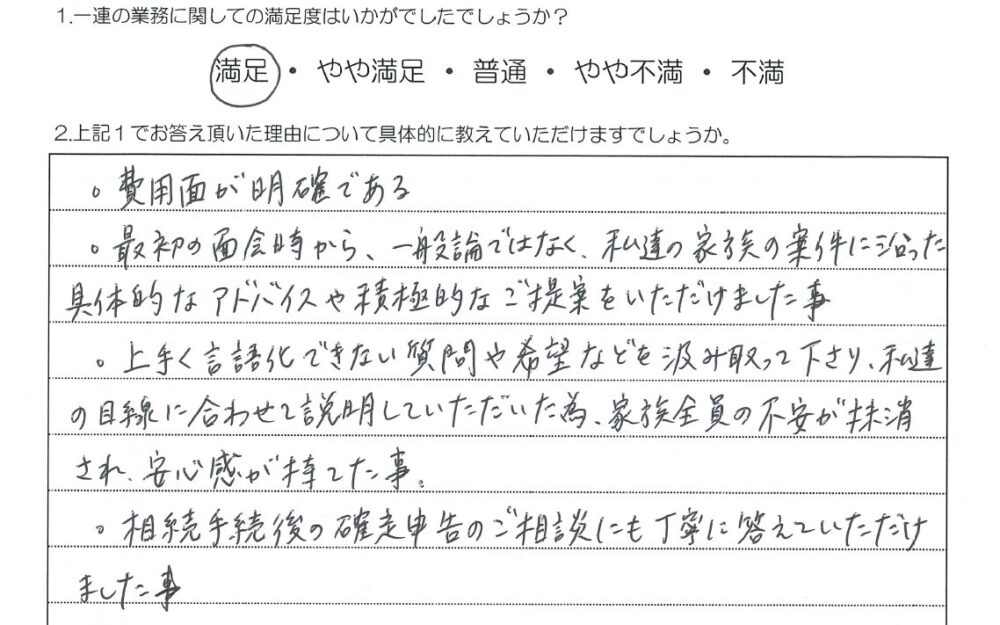 1.一連の業務に関しての満足度はいかがでしたでしょうか？
満足・やや満足・普通・やや不満・不満
2.上記１でお答え頂いた理由について具体的に教えていただけますでしょうか。
。費用面が明確である
。最初の面会時から、一般論ではなく、私達の家族の案件に沿った
具体的なアドバイスや積極的なご提案をいただけました事
。上手く言語化できない質問や希望などを汲み取って下さり、私達
の目線に合わせて説明していただいた為、家族全員の不安が抹消
され、安心感が持てた事。
。相続手続後の確定申告のご相談にも丁寧に答えていただけ
ました事